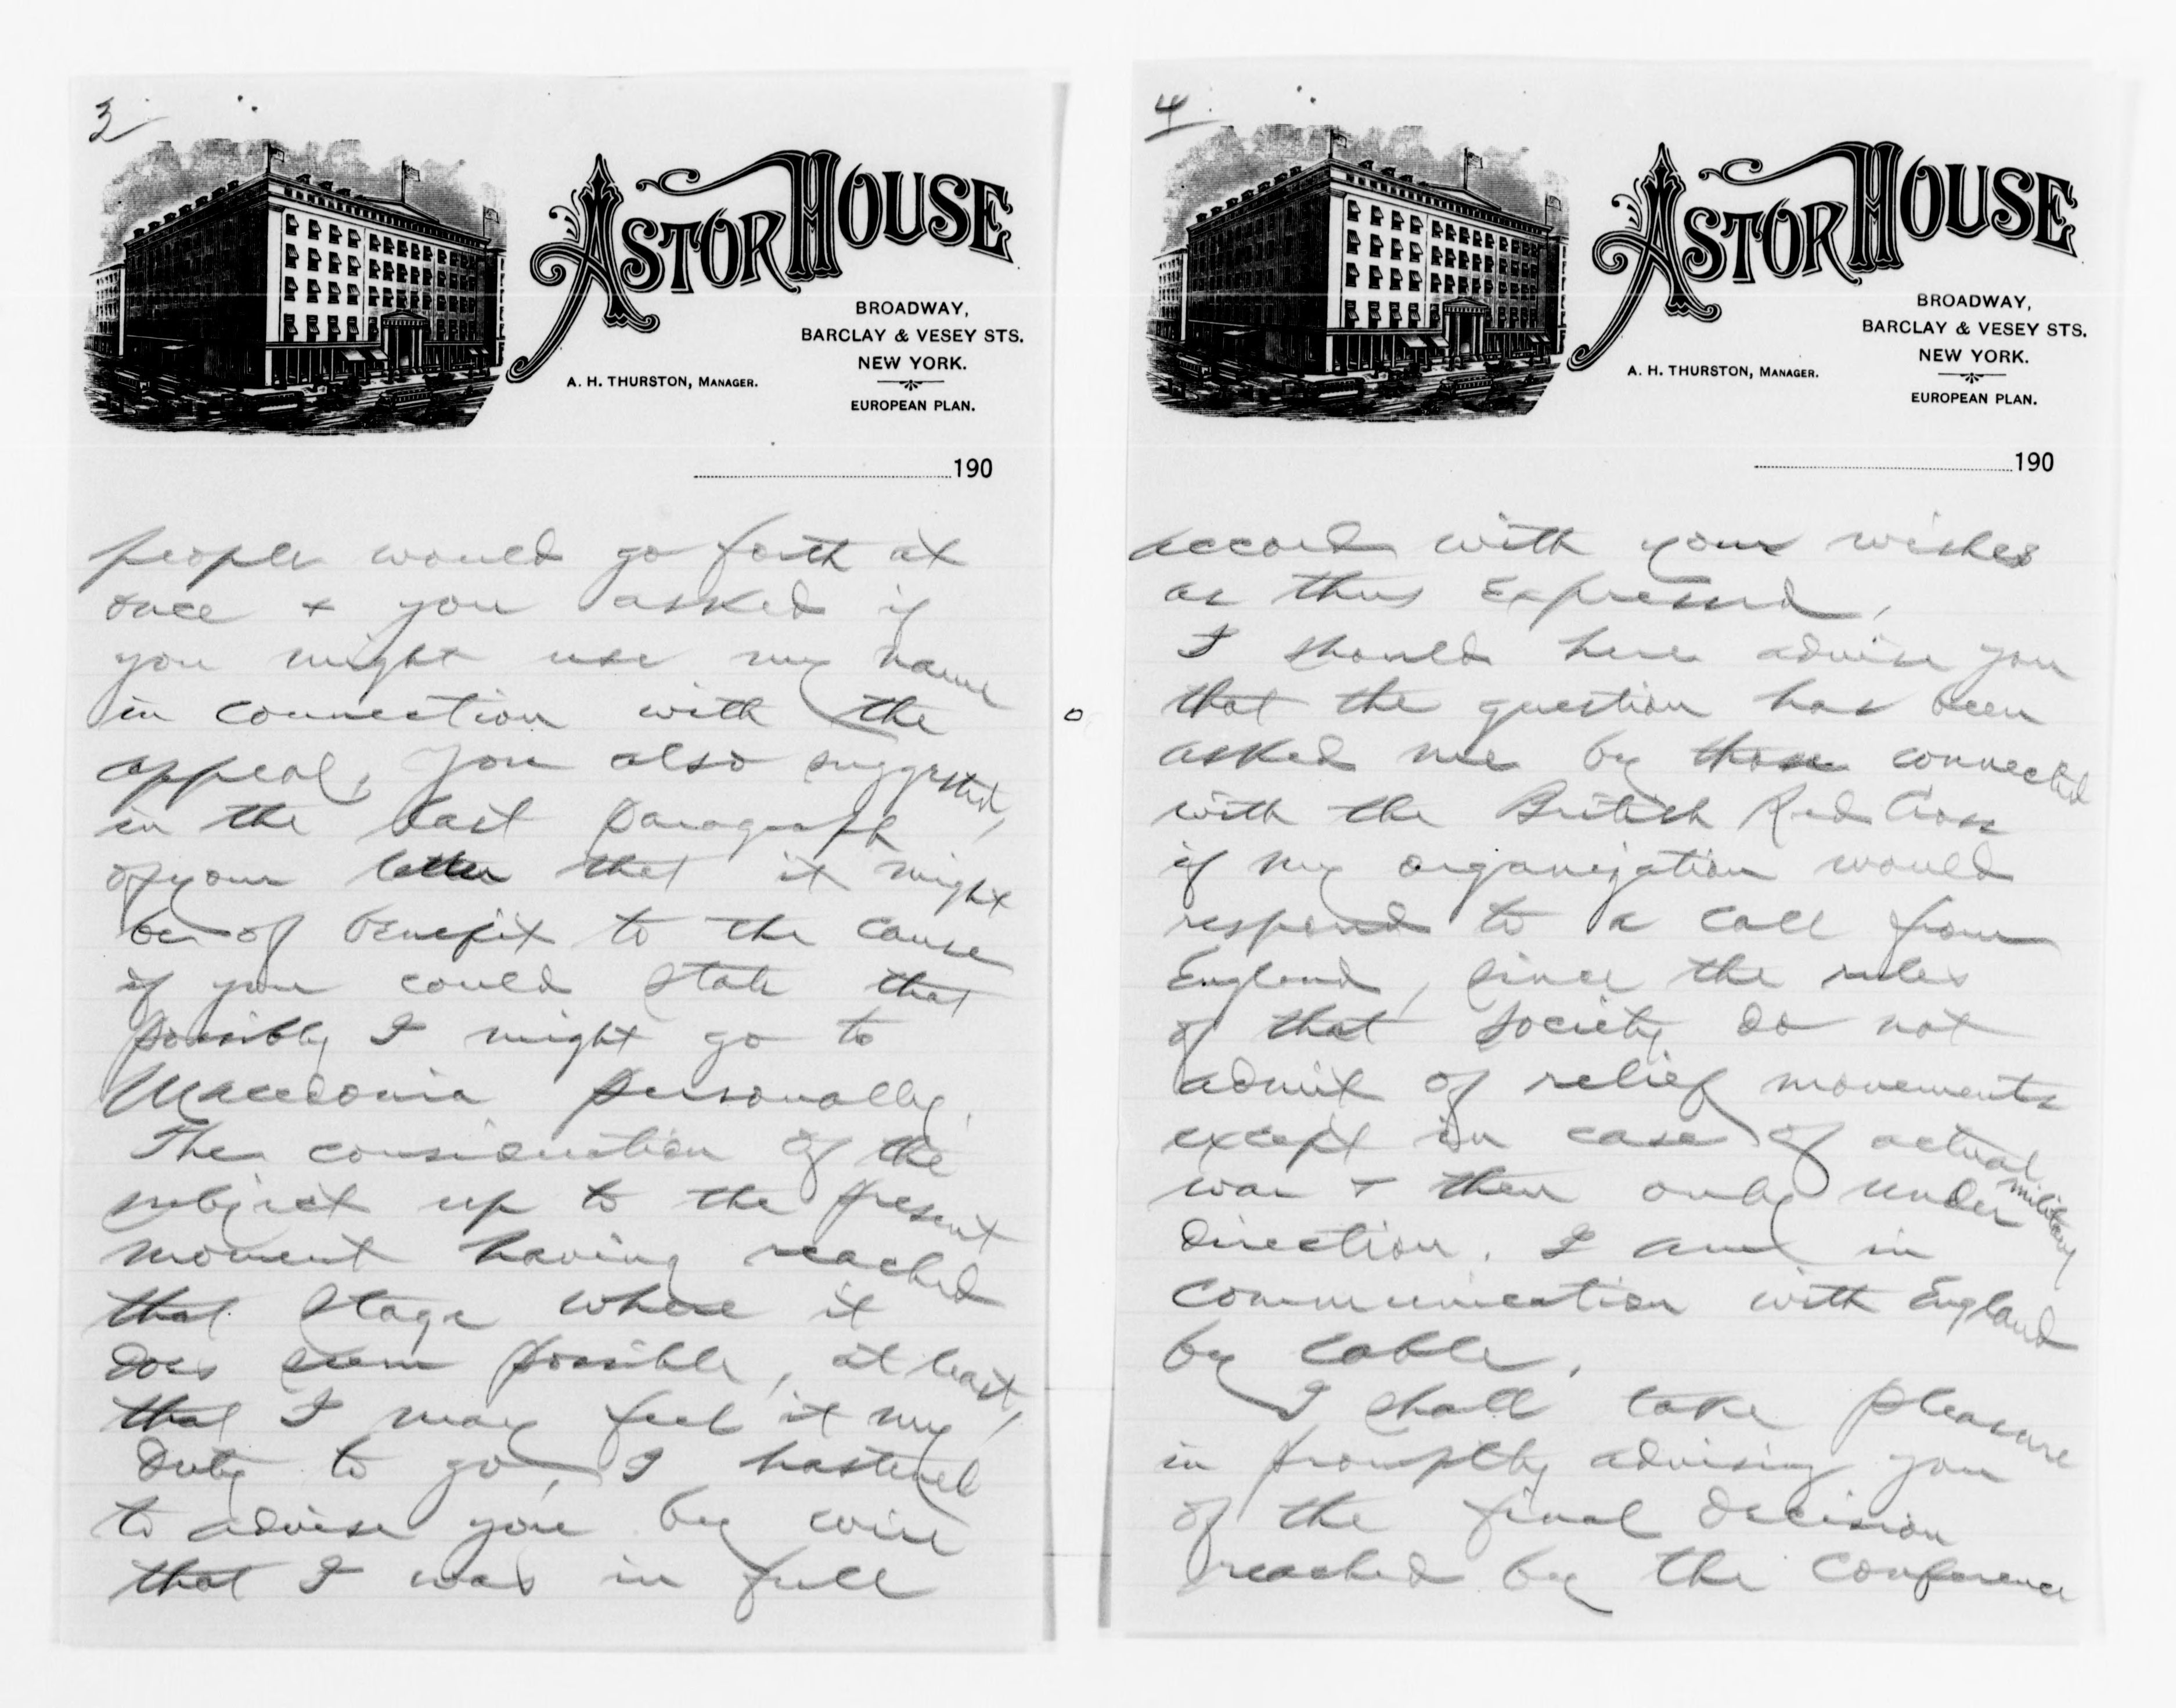 3
ASTOR HOUSE
BROADWAY,
BARCLAY & VESEY STS.
NEW YORK.
A. H. THURSTON, MANAGER.
EUROPEAN PLAN.
190
people would go forth at
once + you asked if
you might use my name
in connection with the
appeal. You also suggested,
in the last paragraph
of your letter that it might
be of benefit to the cause
if you could state that
possibly I might go to
Macedonia personally.
The consideration of the
subject up to the present
moment having reached
that stage where it
does seem possible, at least,
that I may feel it my
duty to go, I hastened
to advise you by wire
that I was in full
4
ASTOR HOUSE
BROADWAY,
BARCLAY & VESEY STS.
NEW YORK.
A. H. THURSTON, MANAGER.
EUROPEAN PLAN.
190
accord with your wishes
as thus expressed.
I should here advise you
that the question has been
asked me by those connected
with the British Red Cross
if my organization would
respond to a call from
England, since the rules
of that society do not
admit of relief movements
except in case of actual
war + then only under military
direction. I am in
communication with England
by cable.
I shall take pleasure
in promptly advising you
of the final decision
reached by the conference